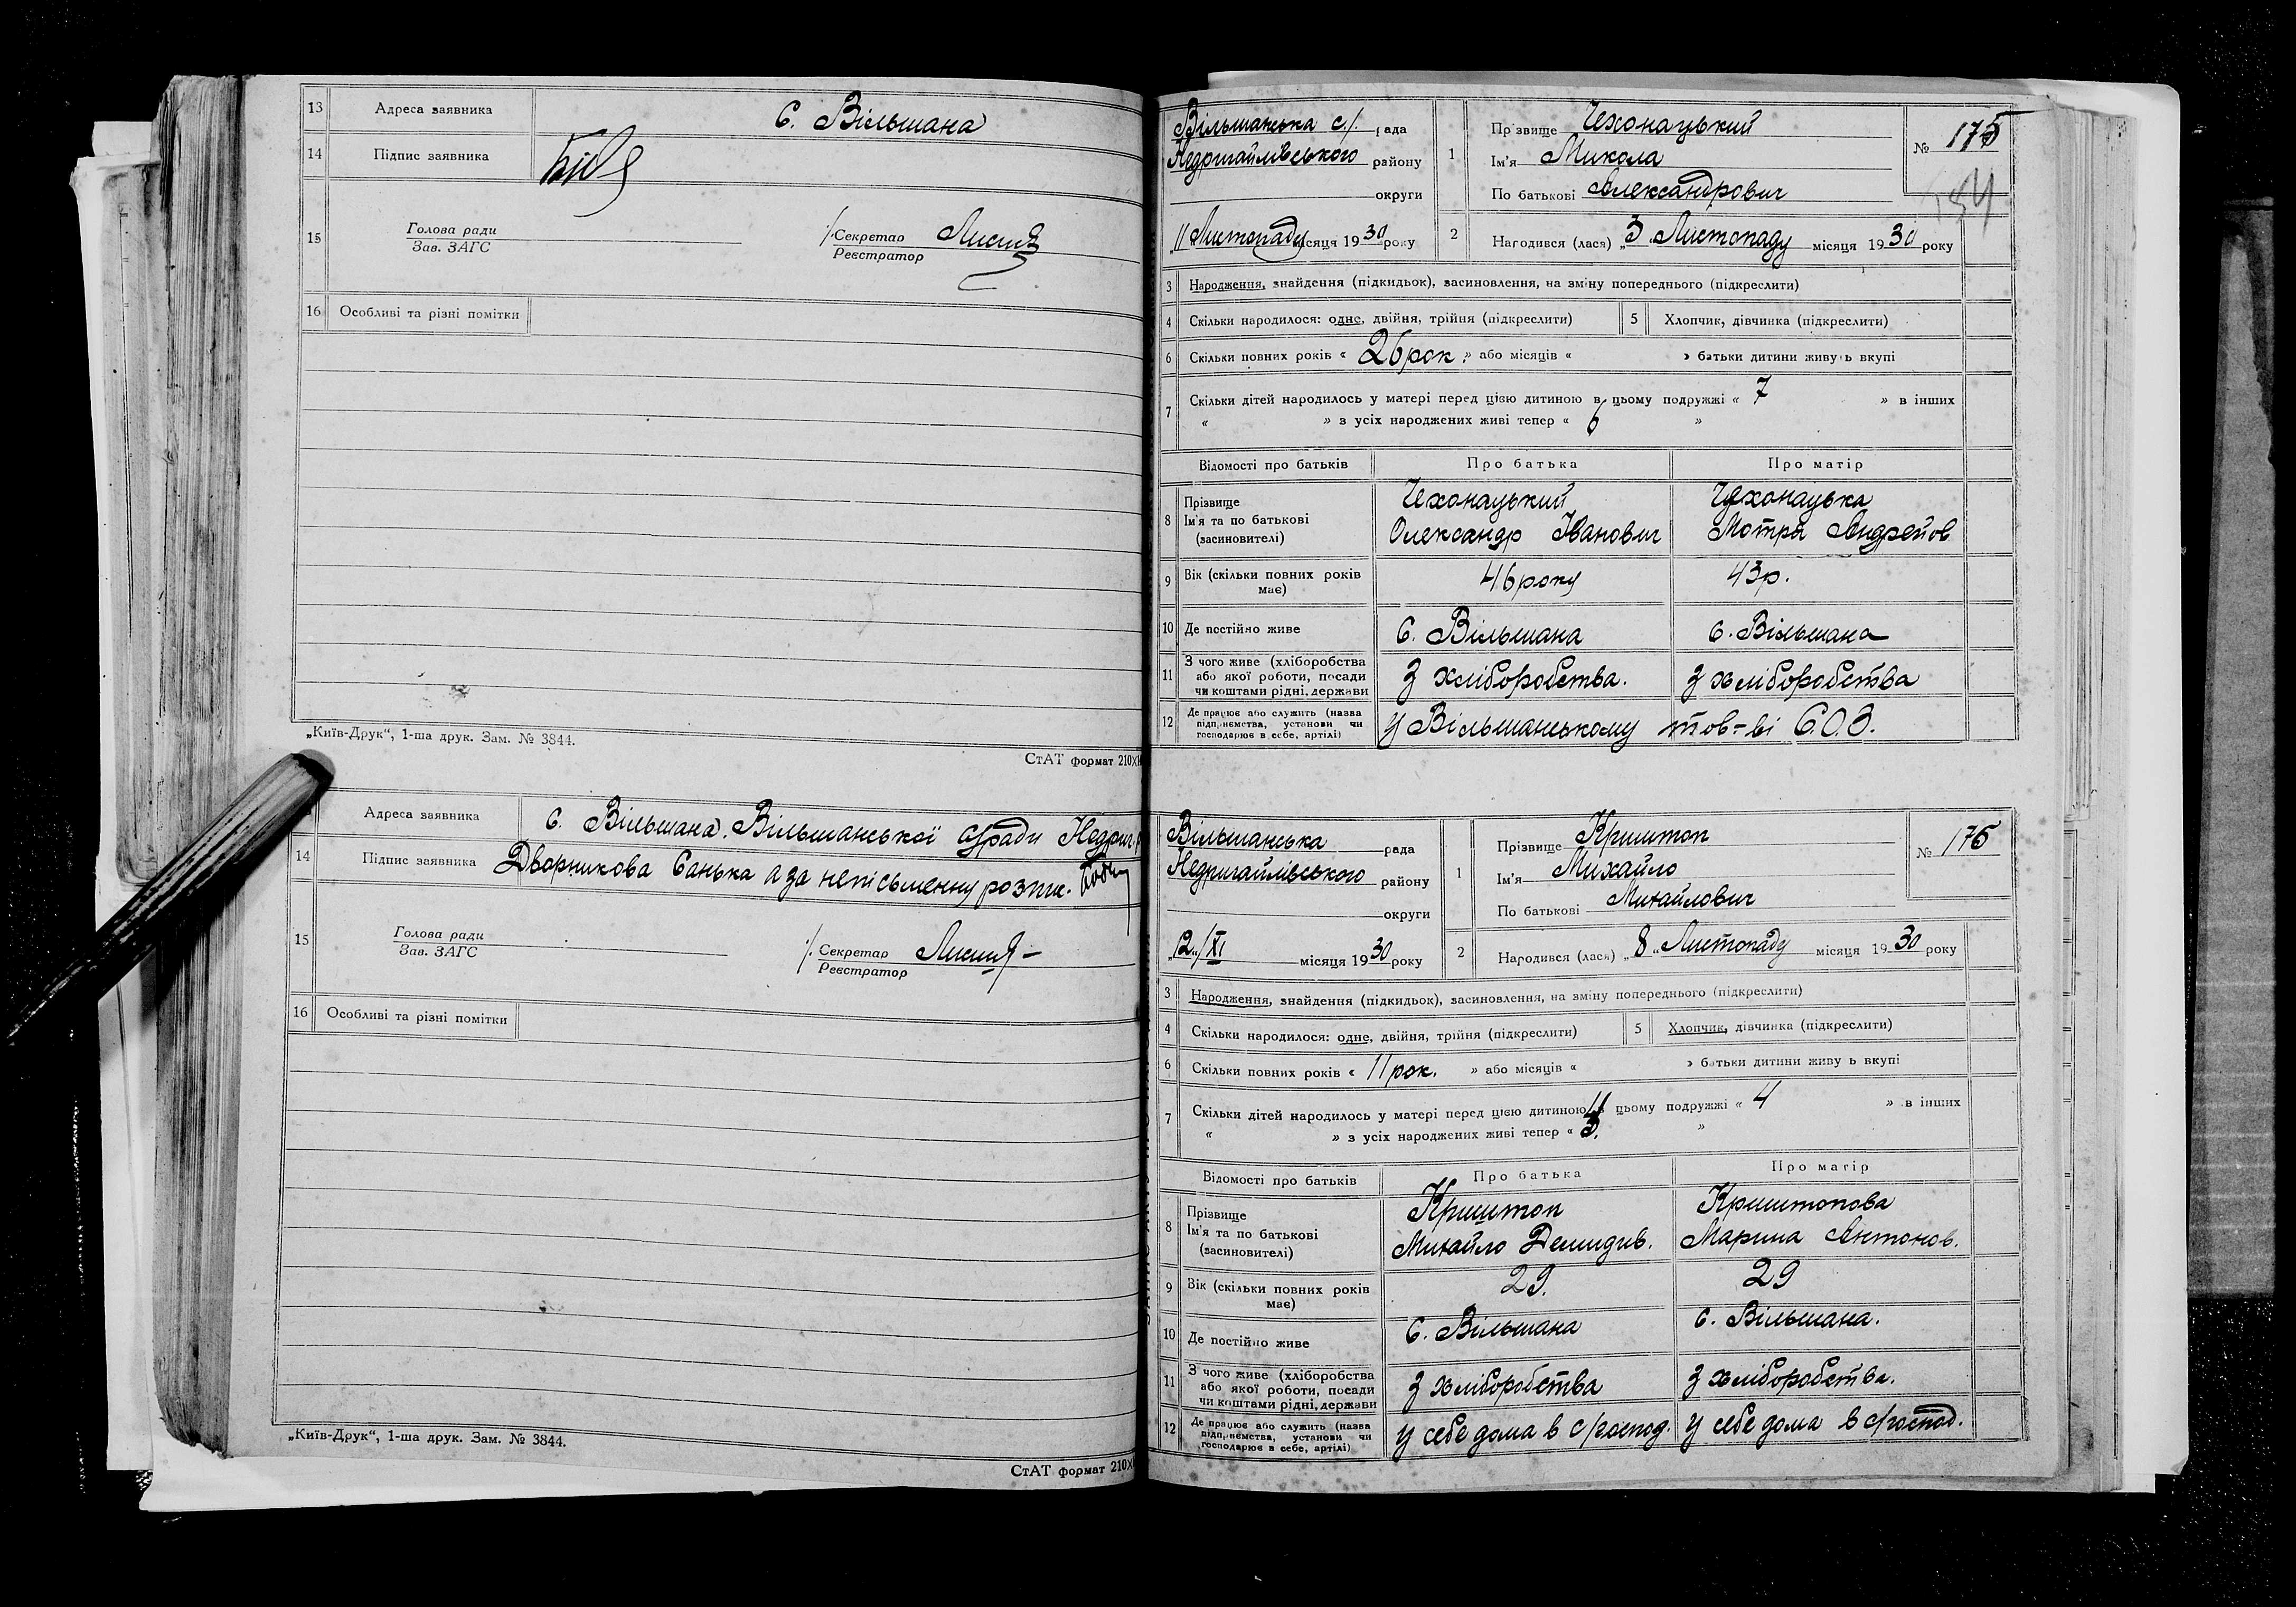 13 Адреса заявника С. Вільшана
14 Підпис заявника
15 Голова ради
Зав. ЗАГС
Секретар
Реєстратор
16 Особливі та різні помітки
„Київ-Друк“, 1-ша друк. Зам. № 3844.
СтАТ формат 210×
Адреса заявника с. Вільшана. Вільшанської с/ради Недриг.
14 Підпис заявника Дворникова Санька а за неписьменну розпис.
15 Голова ради
Зав. ЗАГС
Секретар
Реєстратор
16 Особливі та різні помітки
„Київ-Друк“, 1-ша друк. Зам. № 3844.
СтАТ формат 210×
Вільшанська с/. рада
Недригайлівського району
округи
„11 Листопаду місяця 1930 року
1 Прізвище Чехонацький
Ім'я Микола
По батькові Александрович
№ 175
184
2 Народився (лася) „3 Листопаду місяця 1930 року
3 Народження, знайдення (підкидьок), засиновлення, на зміну попереднього (підкреслити)
4 Скільки народилося: одне, двійня, трійня (підкреслити) 5 Хлопчик, дівчинка (підкреслити)
6 Скільки повних років « 26 рок. » або місяців « » батьки дитини живуть вкупі
7 Скільки дітей народилось у матері перед цією дитиною в цьому подружжі « 7 » в інших
« » з усіх народжених живі тепер « 6 »
Відомості про батьків Про батька Про матір
8 Прізвище Чехонацький Чехонацька
Ім'я та по батькові Олександр Іванович Мотря Андреїов
(засиновителі)
9 Вік (скільки повних років має) 46 року 43 р.
10 Де постійно живе С. Вільшана с. Вільшана
11 З чого живе (хліборобства або якої роботи, посади чи коштами рідні, держави З хліборобства. З хліборобства
12 Де працює або служить (назва підприємства, установи чи господарює в себе, артілі) у Вільшанському тов-ві С.О.З.
Вільшанська рада
Недригайлівського району
округи
„12„/XI місяця 1930 року
1 Прізвище Криштоп
Ім'я Михайло
По батькові Михайлович
№ 176
2 Народився (лася) „8„ Листопаду місяця 1930 року
3 Народження, знайдення (підкидьок), засиновлення, на зміну попереднього (підкреслити)
4 Скільки народилося: одне, двійня, трійня (підкреслити) 5 Хлопчик, дівчинка (підкреслити)
6 Скільки повних років « 11 рок. » або місяців « » батьки дитини живуть вкупі
7 Скільки дітей народилось у матері перед цією дитиною в цьому подружжі « 4 » в інших
« » з усіх народжених живі тепер « 3. »
Відомості про батьків Про батька Про матір
8 Прізвище Криштоп Криштопова
Ім'я та по батькові Михайло Демидів. Марина Антонов.
(засиновителі)
9 Вік (скільки повних років має) 29. 29
10 Де постійно живе с. Вільшана с. Вільшана.
11 З чого живе (хліборобства або якої роботи, посади чи коштами рідні, держави З хліборобства З хліборобства.
12 Де працює або служить (назва підприємства, установи чи господарює в себе, артілі) у себе дома в с/господ. у себе дома в с/господ.